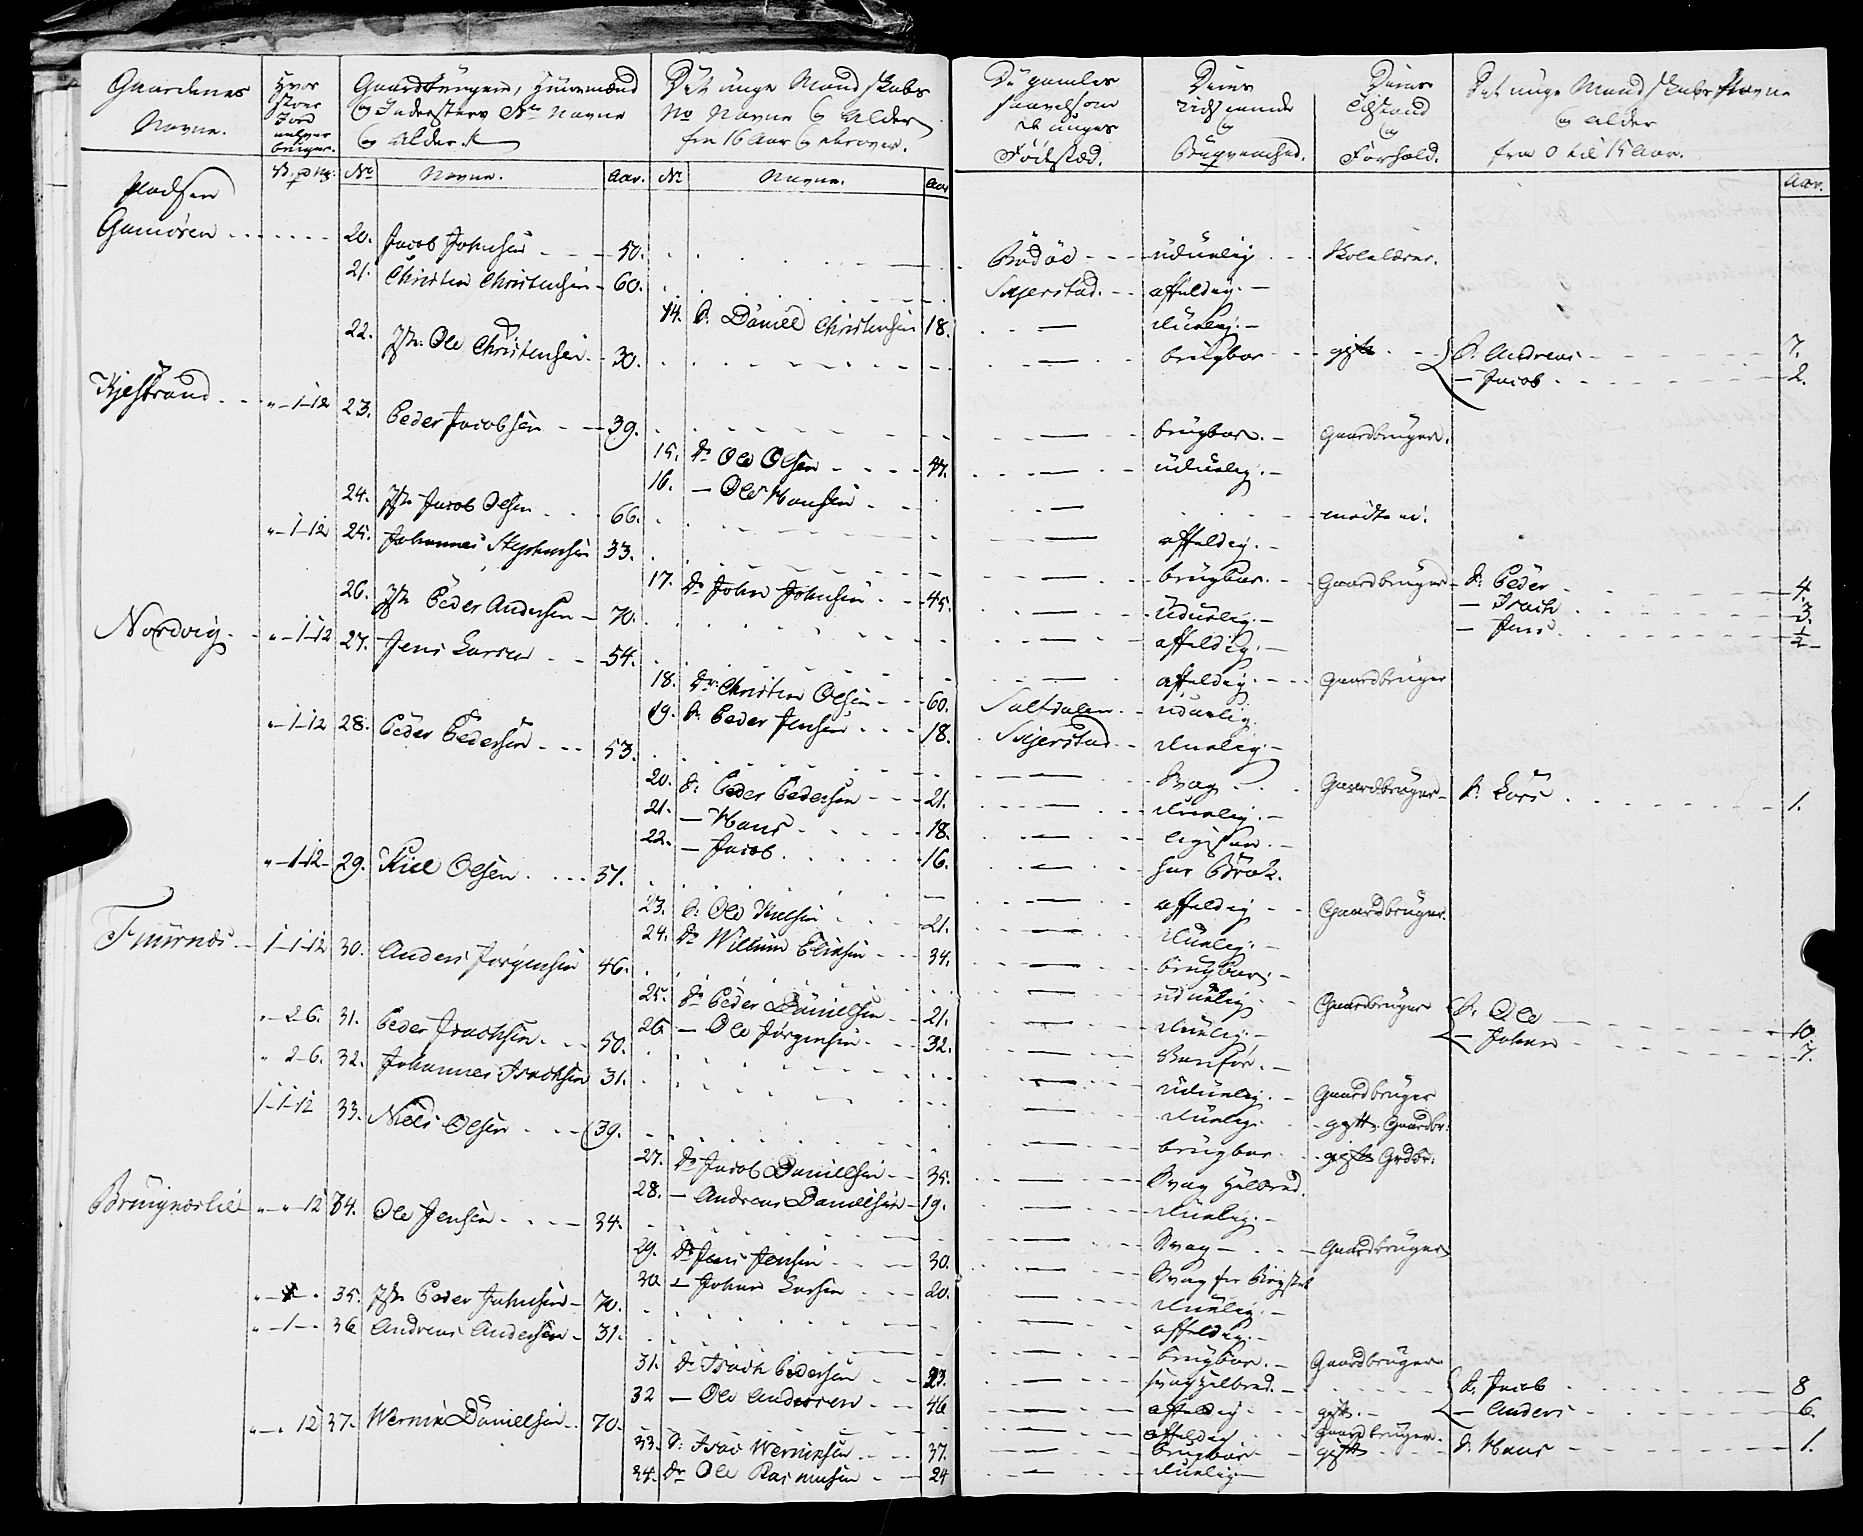 Gaardenes Navne.
Hvor stoer Jord enhver bruger.
Gaardbrugere, Huusmænd og Indersters No Navne og Alder
Det unge Mandskabs No Navne og Alder fra 16 Aar og derover.
De gamles saavelsom de unges Fødested.
Deres Vidstrinde og Beqvemhed.
Deres Tilstand og Forhold.
Det unge Mandskabs Navne og Alder fra 0 til 15 Aar.
No Navne. Aar. No Navne. Aar Aar.
Pladsen
Gamøren 20. Jacob Johnsen 50. Bodøe uduelig Skolelærer.
21. Christen Christensen 60. Skjerstad. affeldig.
14. S. Daniel Christensen 18. duelig.
22. Jst. Ole Christensen 30. brugbar gift S. Andreas 7.
Jacob 2.
Kjelstrand " 1 12 23. Peder Jacobsen 39. brugbar. Gaardbruger.
15. Dr Ole Olsen 47. uduelig.
16. Ole Hansen mødte ei.
24. Jst. Jacob Olsen 66. affeldig.
" 1 12 25. Johannes Stephensen 33. brugbar. Gaardbruger S. Peder 4.
Isach 3.
Jens ½
17. Dr John Johnsen 45. uduelig.
26. Jst. Peder Andersen 70. affeldig.
Nordvig " 1 12 27. Jens Larsen 54. affeldig. Gaardbruger
18. Dr Christen Olsen 60. Saltdalen uduelig.
19. S. Peder Jensen 18. Skjerstad duelig
" 1 12 28. Peder Pedersen 53. Svag Gaardbruger S. Lars 1.
20. S. Peder Pedersen 21. duelig.
21. Hans 18. ligesaa.
22. Jacob 16. har Brok.
" 1 12 29. Kiel Olsen 51. affeldig Gaardbruger.
23. S. Ole Kielsen 21. duelig.
24. Dr Willum Eliasen 34. brugbar.
Fuurnæs 1 1 12 30. Anders Jørgensen 46. uduelig Gaardbruger S. Ole 10.
Johan 7.
25. Dr Peder Danielsen 21. duelig.
26. Ole Jørgensen 32. Vanfør.
" 2 6. 31. Peder Isachsen 50. uduelig. Gaardbruger
" 2 6. 32. Johannes Isachsen 31. duelig. gift Gaardbr.
1 1 12 33. Niels Olsen 39. brugbar gift Grdbr.
27. Dr Jacob Danielsen 35. Svag Helbred.
28. Andreas Danielsen 19. duelig.
Bruignæslie " " 12 34. Ole Jensen 34. Svag Gaardbruger
29. Dr Jens Jensen 30. Svag for Brystet
30. Johan Larsen 20. duelig.
35. Jst. Peder Johnsen 70. affeldig.
" 1 " 36. Andreas Andersen 31. brugbar. Gaardbruger S. Jacob 8
Anders 6.
31. Dr Isach Pedersen 23. svag Helbred.
32 Ole Andersen 46 affeldig gift.
" " 12 37. Werner Danielsen 70. affeldig Gaardbruger.
33. S. Isac Wernersen 37. brugbar gift S. Hans 1.
34. Dr Ole Rasmusen 24 duelig